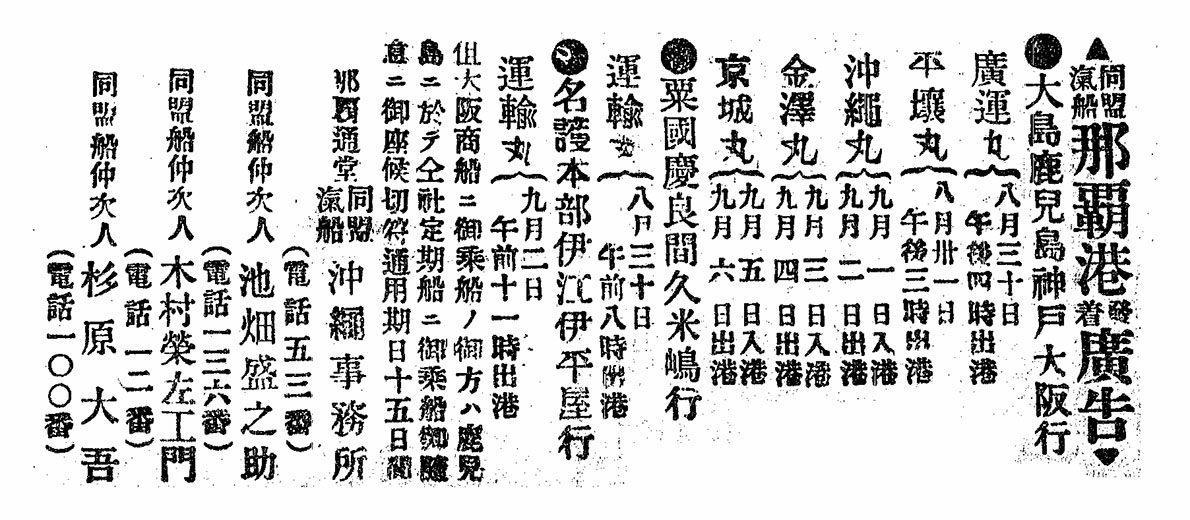 ▲同盟汽船那覇港發着廣告▼
●大島鹿兒島神戸大阪行
廣運丸 八月三十日 午後四時出港
平壤丸 八月卅一日 午後三時出港
沖繩丸 九月一日入港 九月二日出港
金澤丸 九月三日入港 九月四日出港
京城丸 九月五日入港 九月六日出港
●粟國慶良間久米嶋行
運輸丸 八月三十日 午前八時出港
●名護本部伊江伊平屋行
運輸丸 九月二日 午前十一時出港
但大阪商船ニ御乘船ノ御方ハ鹿兒
島ニ於テ仝社定期船ニ御乘船御隨
意ニ御座候切符通用期日十五日間
那覇通堂
同盟汽船 沖繩事務所
(電話五三番)
同盟船仲次人 池畑盛之助
(電話一三六番)
同盟船仲次人 木村榮左工門
(電話一二番)
同盟船仲次人 杉原大吾
(電話一〇〇番)